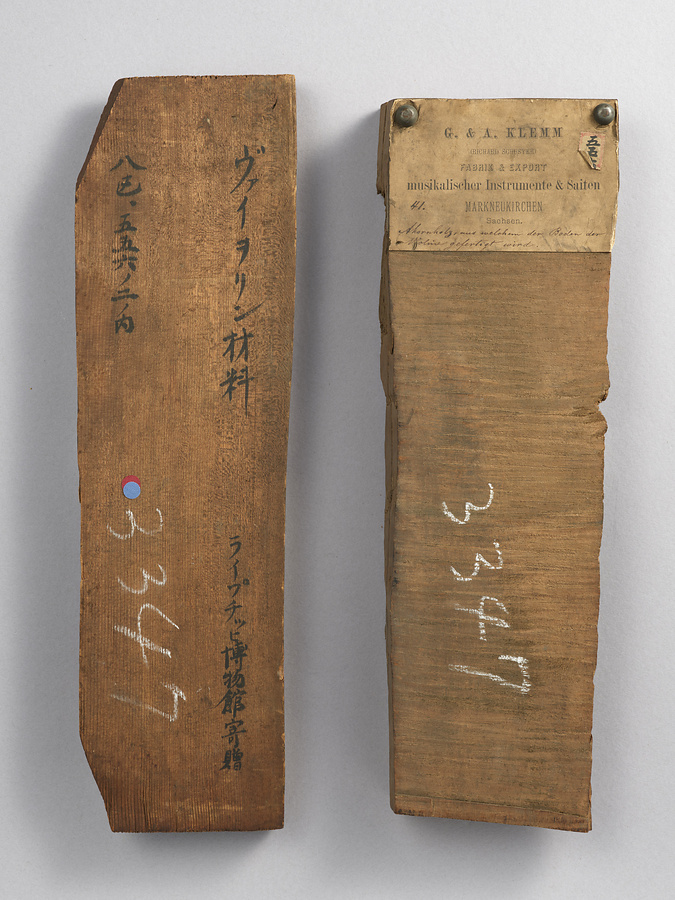 ヴァイヲリン材料
ライプチッヒ博物館寄贈
八七、五五六ノ二ノ内
3347
G. & A. KLEMM
FABRIK & EXPORT
musikalischer Instrumente & Saiten
41.
MARKNEUKIRCHEN
Sachsen.
Ahornholz, aus welchem der Boden der
Violine gefertigt wird.
3347